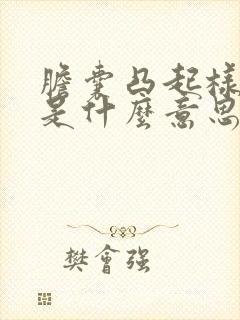 膽囊凸起樣
是什麼意思
樊會强